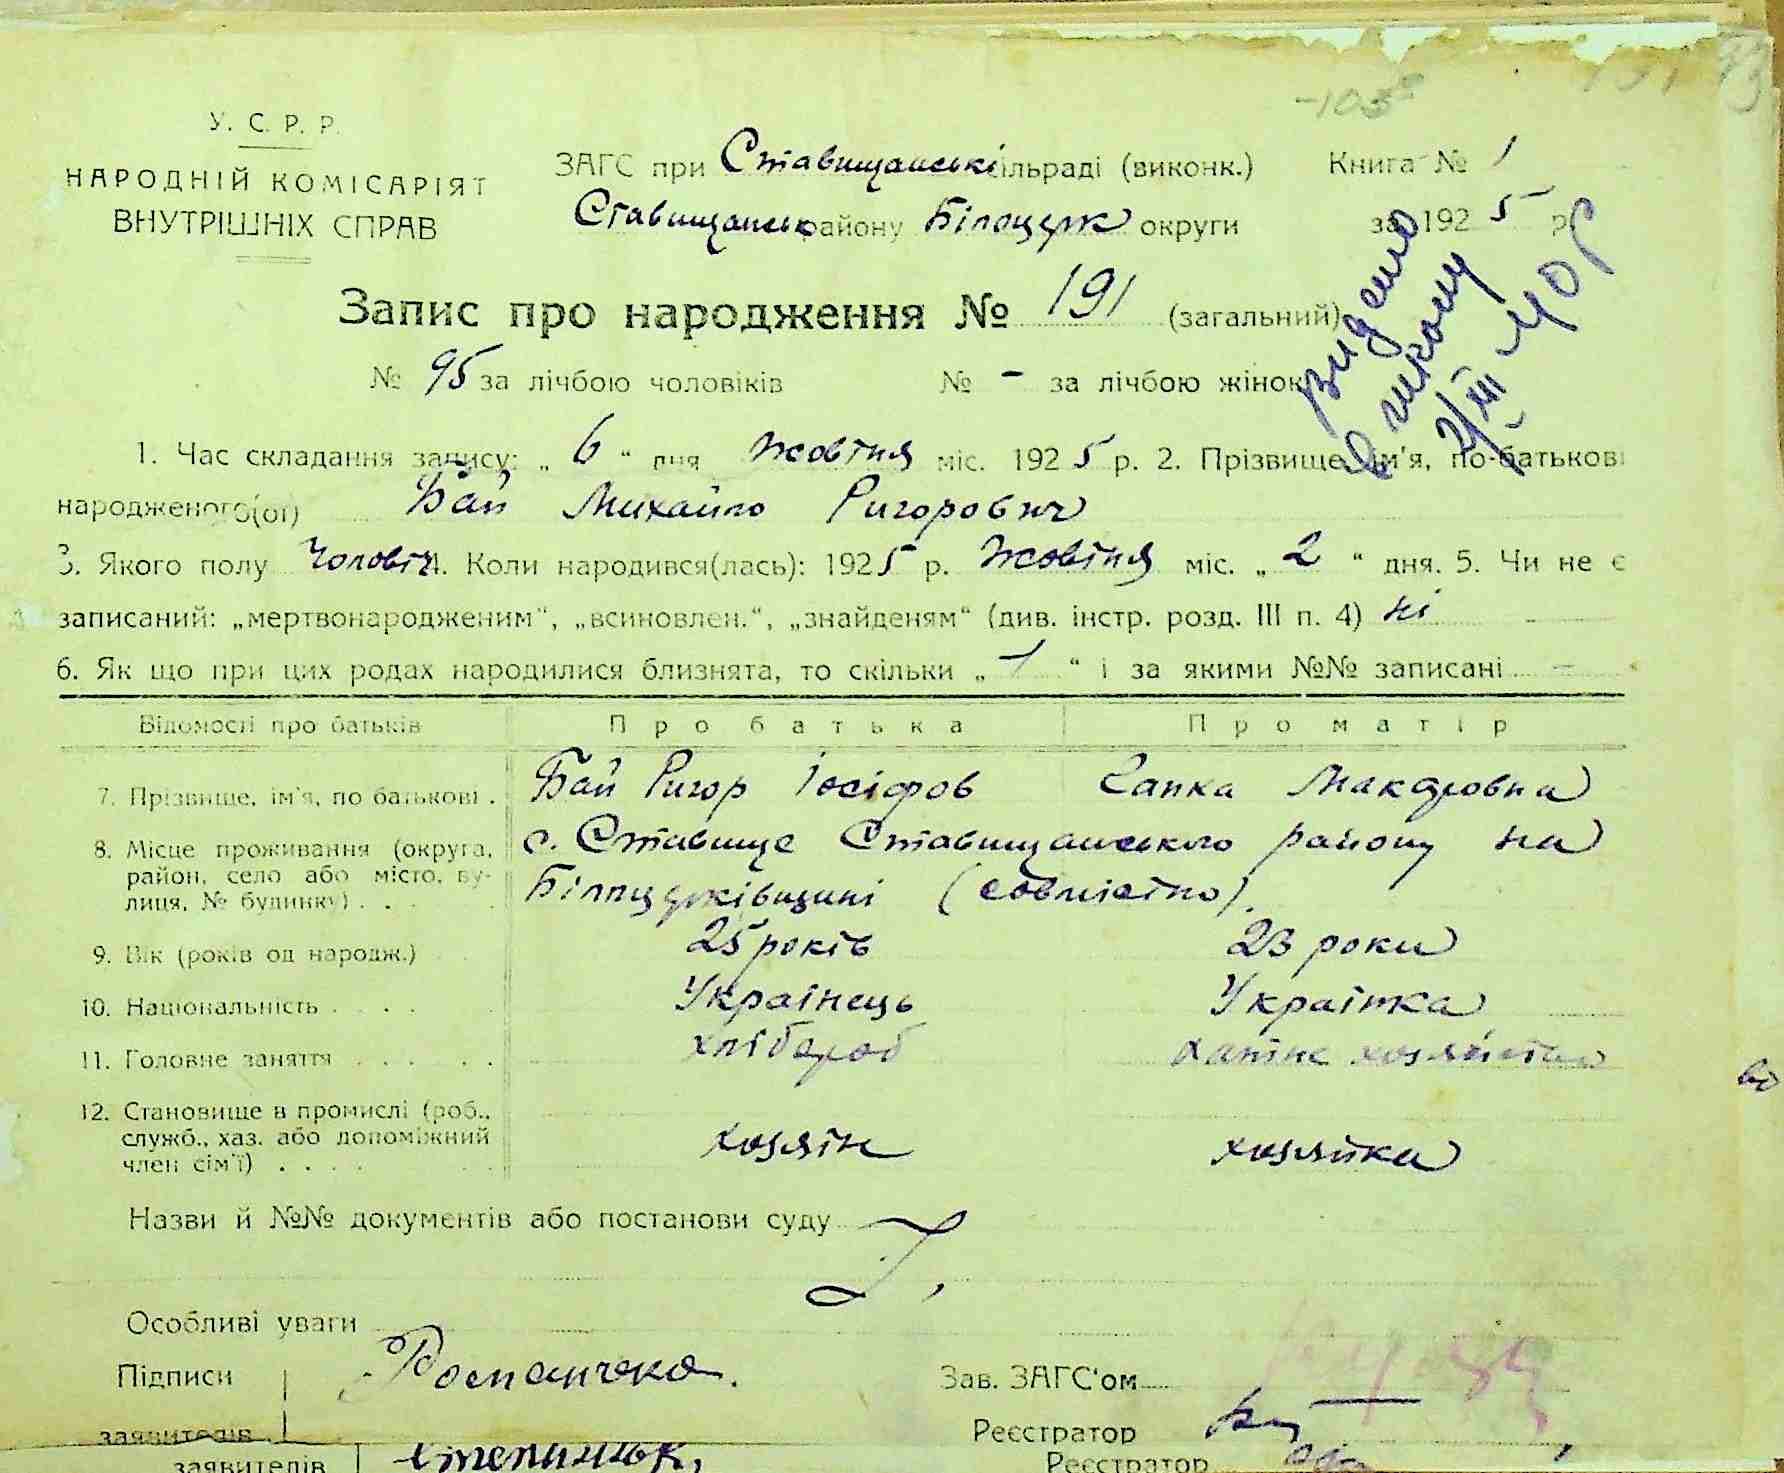 -103
У. С. Р. Р.
НАРОДНІЙ КОМІСАРІЯТ
ВНУТРІШНІХ СПРАВ
ЗАГС при Ставищанські сільраді (виконк.) Книга № 1
Ставищанськ району Білоцерк округи за 1925 р
Запис про народження № 191 (загальний)
№ 95 за лічбою чоловіків № - за лічбою жінок
Видано
2/III 40 р
1. Час складання запису: „ 6 “ дня жовтня міс. 1925 р. 2. Прізвище, ім'я, по-батькові
народженого(ої) Бай Михайло Ригорович
3. Якого полу Чоловіч 4. Коли народився(лась): 1925 р. жовтня міс. „ 2 “ дня. 5. Чи не є
записаний: „мертвонародженим“, „всиновлен.“, „знайденям“ (див. інстр. розд. III п. 4) ні
6. Як що при цих родах народилися близнята, то скільки „ 1 “ і за якими №№ записані -
Відомості про батьків Про батька Про матір
7. Прізвище, ім'я, по батькові . Бай Ригор Іосіфов Гапка Макаровна
8. Місце проживання (округа, район, село або місто, вулиця, № будинку) . . с. Ставище Ставищанського району на
Білоцерківщині (совмістно).
9. Вік (років од народж.) 25 років 23 роки
10. Національність . . . . Українець Українка
11. Головне заняття . . . . . хлібороб хатнє хозяйство
12. Становище в промислі (роб., служб., хаз. або допоміжний член сім'ї) . . . . хозяїн хозяйка
Назви й №№ документів або постанови суду
Особливі уваги
Підписи
Зав. ЗАГС'ом
заявителів
Реєстратор
заявителів
Реєстратор